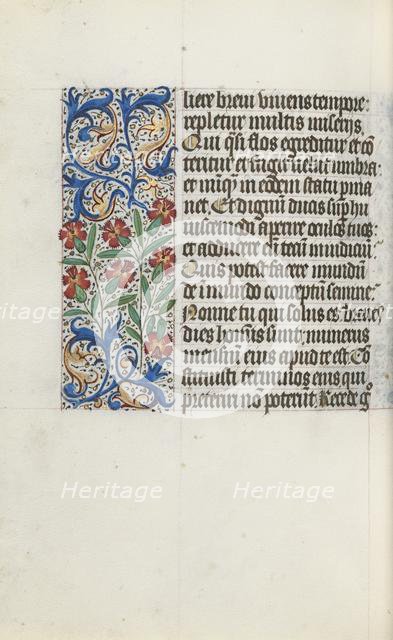 liere brevi vivens tempore:
repletur multis miseriis.
Qui qsi flos egreditur et co
teritur et fugit velut umbra:
et nuq in eodem statu pma
net. Et dignum ducas sup hu
iuscemodi aperire oculos tuos:
et adducere eu tecu in iudiciu
Quis potest facere mundu
de inmundo conceptu semine:
Nonne tu qui solus es: breves
dies hominis sunt: numerus
mensiu eius apud te est. Co
stituisti terminos eius qui
preteriri no poterut. Recede g
Heritage Heritage
Heritage Heritage
Heritage Heritage